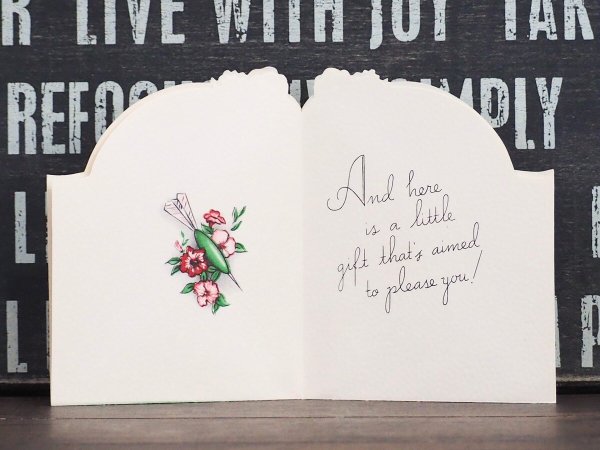 R LIVE WITH JOY TAK
And here
is a little
gift that's aimed
to please you!